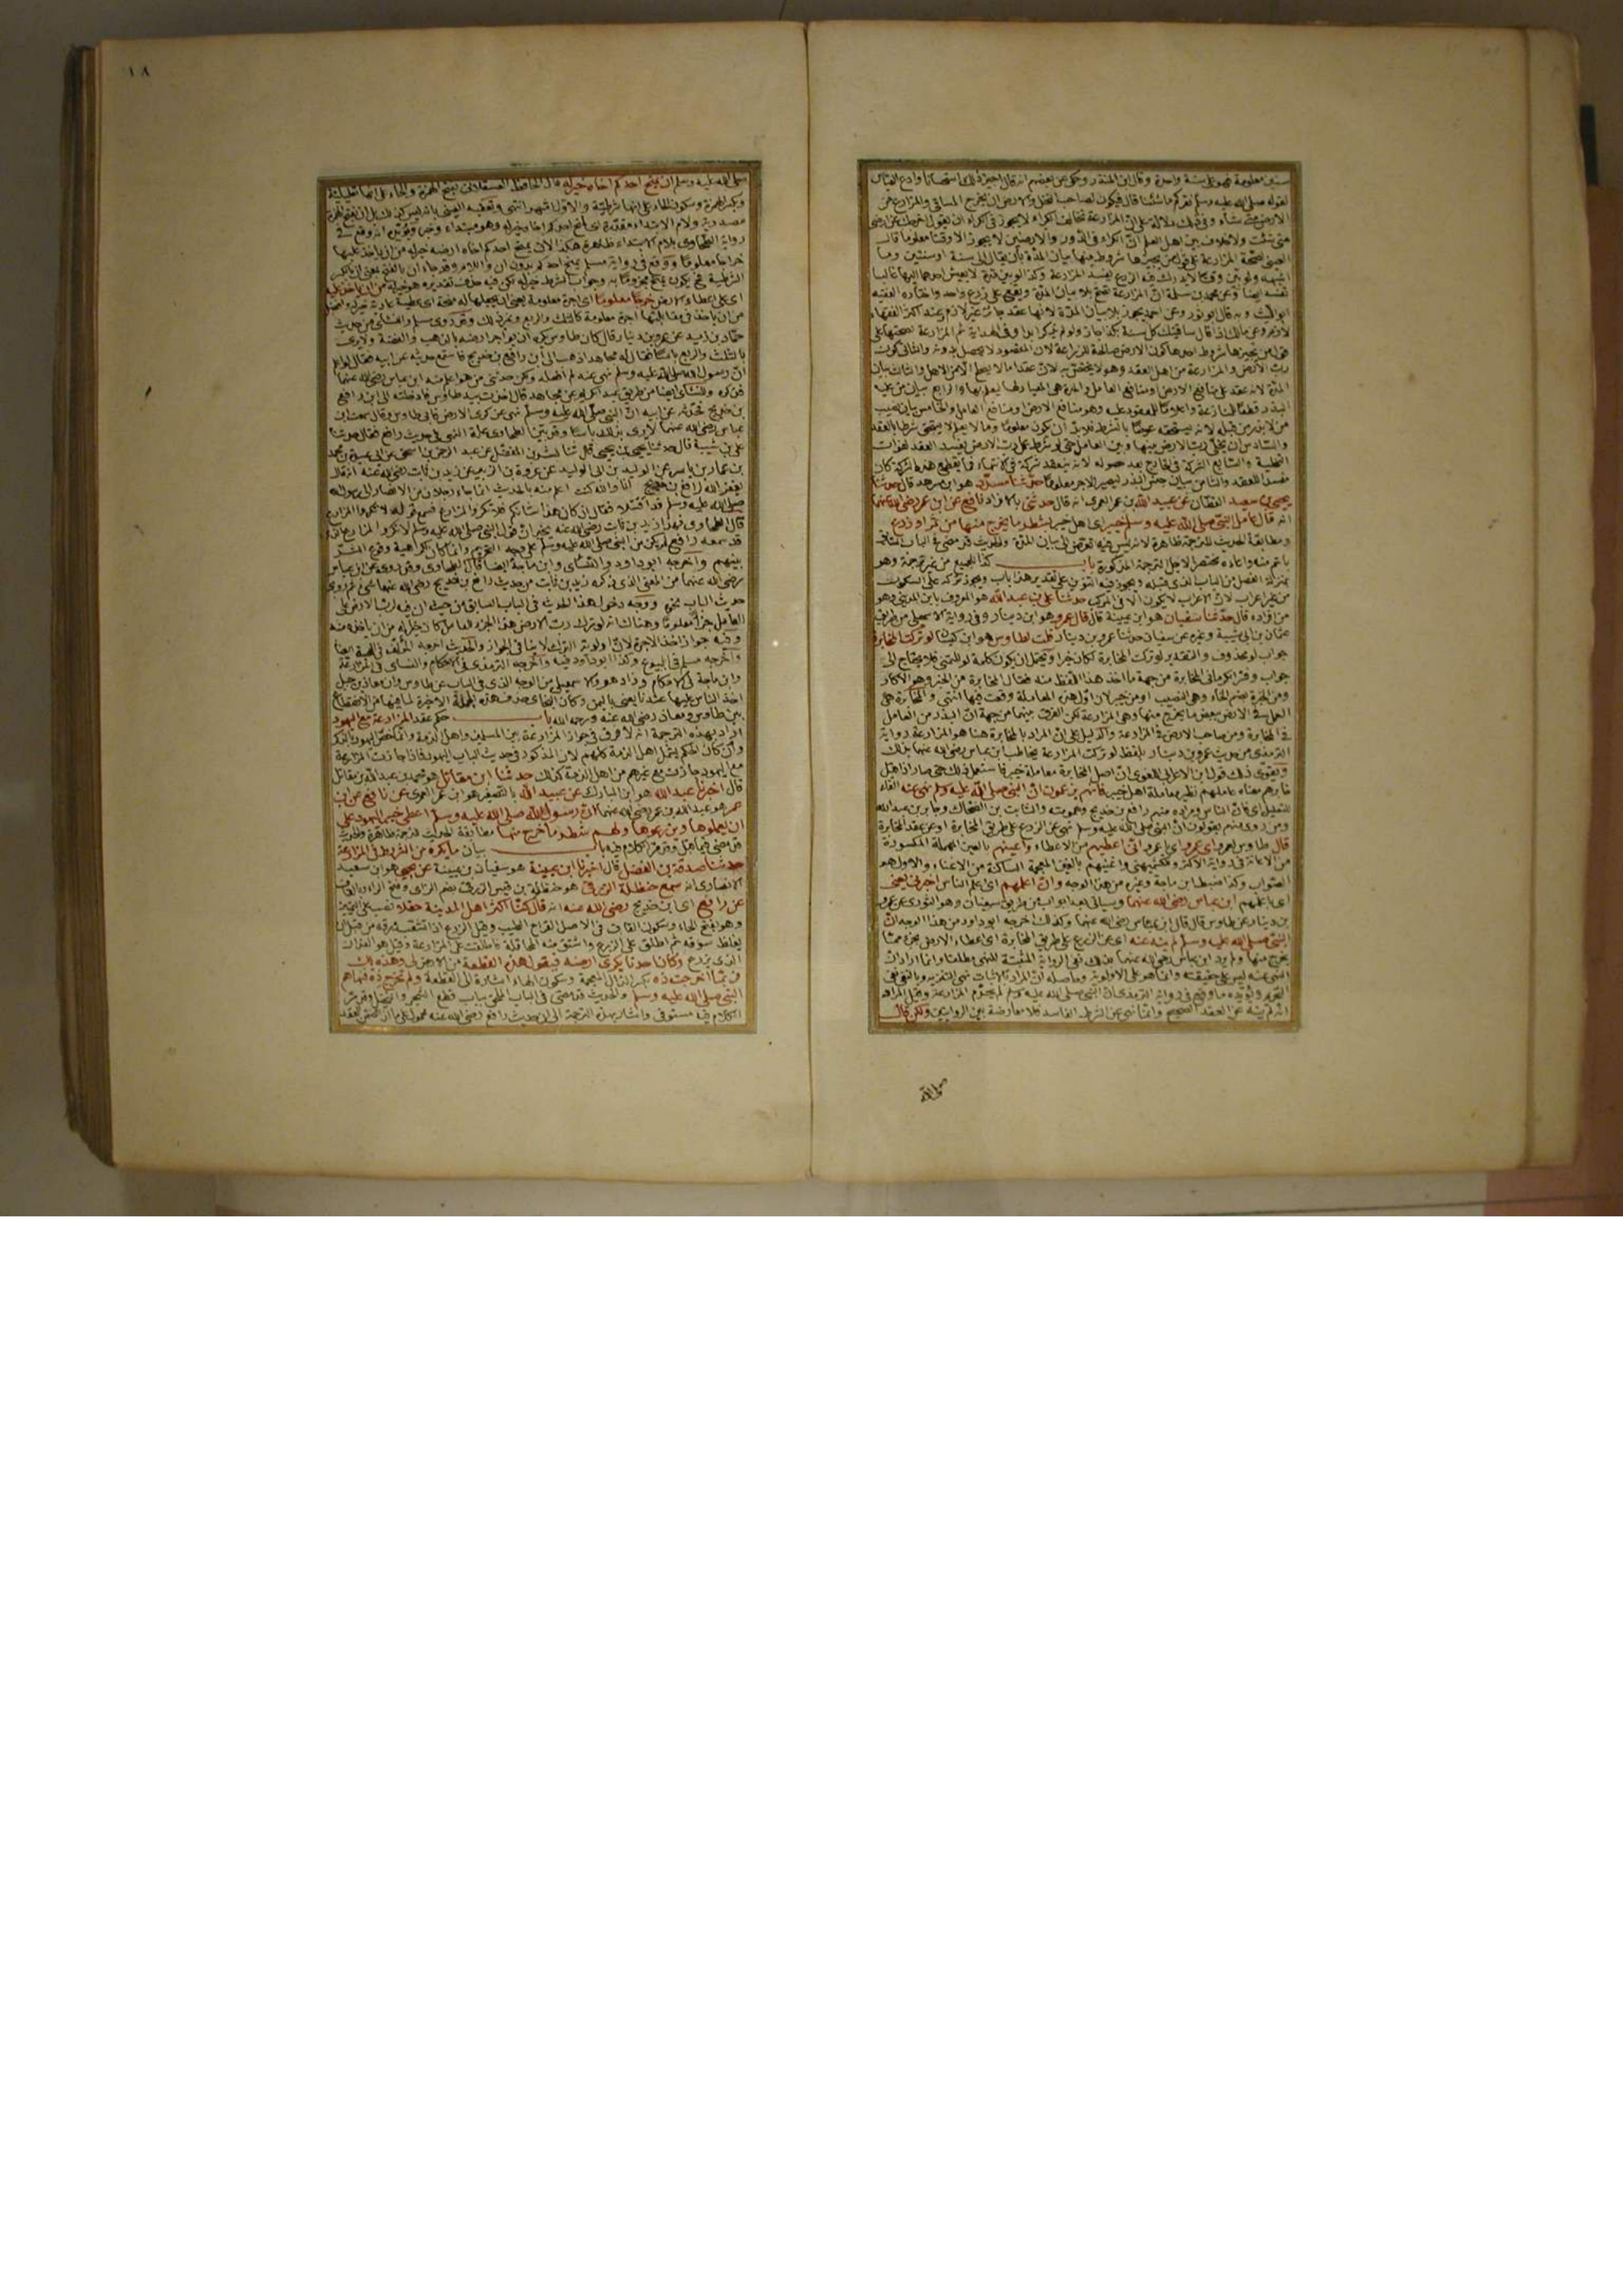 سنين معلومة فهو على سنة واحدة وقال ابن المنذر وحكى عن بعضهم انه قال اجيز ذلك استحسانا وادع القياس
لقوله صلى الله عليه وسلم نقركم ما شئنا قال فيكون لصاحب النخل والارض ان يخرج المساقي والمزارع من
الارض متى شاء وفي ذلك دلالة على ان المزارعة تخالف الكراء لا يجوز في الكراء ان يقول اخرجك عن ارضي
متى شئت ولا خلاف بين اهل العلم ان الكراء في الدور والارضين لا يجوز الا وقتا معلوما قال
العيني لصحة المزارعة على قول من يجيزها شروط منها بيان المدة بان يقال الى سنة او سنتين وما
اشبهه ولو بين وقتا لا يدرك فيه الزرع يفسد المزارعة وكذا لو بين مدة لا يعيش احدهما اليها غالبا
تفسد ايضا وعن محمد بن سلمة ان المزارعة تصح بلا بيان المدة وتقع على زرع واحد واختاره الفقيه
ابو الليث وبه قال ابو ثور وعن احمد يجوز بلا بيان المدة لانها عقد جائز غير لازم وعند اكثر الفقهاء
قول من يجيزها شروط احدها كون الارض صالحة للزراعة لان المقصود لا يحصل بدونه والثاني كون
رب الارض والمزارع من اهل العقد وهو لا يختص به لان عقدا ما لا يصح الا من الاهل والثالث بيان
المدة لانه عقد على منافع الارض او منافع العامل والمدة هي المعيار لها ليعلم بها والرابع بيان من عليه
البذر قطعا للمنازعة واعلاما للمعقود عليه وهو منافع الارض او منافع العامل والخامس بيان نصيب
من لا بذر من قبله لانه يستحقه عوضا بالشرط فلا بد ان يكون معلوما وما لا يعلم لا يستحق شرطا بالعقد
والسادس ان يخلي رب الارض بينها وبين العامل حتى لو شرط عمل رب الارض يفسد العقد لفوات
التخلية والسابع الشركة في الخارج بعد حصوله لانه ينعقد شركة في الانتهاء فما يقطع هذه الشركة كان
مفسدا للعقد والثامن بيان جنس البذر ليصير الاجر معلوما حدثنا مسدد هو ابن مسرهد قال حدثنا
يحيى بن سعيد القطان عن عبيد الله بن عمر العمري انه قال حدثني بالافراد نافع عن ابن عمر رضي الله عنهما
انه قال عامل النبي صلى الله عليه وسلم خيبر اي اهل خيبر بشطر ما يخرج منها من ثمر او زرع
ومطابقة الحديث للترجمة ظاهرة لانه ليس فيه تعرض الى بيان المدة والحديث قد مضى في الباب السابق
باتم منه واعاده مختصرا لاجل الترجمة المذكورة باب كذا للجميع من غير ترجمة وهو
بمنزلة الفصل من الباب الذي قبله ويجوز فيه التنوين على تقدير هذا باب ويجوز تركه على السكون
من غير اعراب لان الاعراب لا يكون الا في المركب حدثنا علي بن عبد الله هو المعروف بابن المديني وهو
من افراده قال حدثنا سفيان هو ابن عيينة قال قال عمرو هو ابن دينار وفي رواية الاسمعيلي من طريق
عثمان بن ابي شيبة وغيره عن سفيان حدثنا عمرو بن دينار قلت لطاوس هو ابن كيسان لو تركت المخابرة
جواب لو محذوف والتقدير لو تركت المخابرة لكان خيرا ويحتمل ان يكون كلمة لو للتمني فلا يحتاج الى
جواب وفسر الكرماني المخابرة من جهة ماخذ هذا اللفظ منه فقال المخابرة من الخبر وهو الاكار
ومن الخبرة بضم الخاء وهو النصيب او من خيبر لان اول هذه المعاملة وقعت فيها انتهى والمخابرة هي
العمل في الارض ببعض ما يخرج منها وهي المزارعة لكن الفرق بينهما من جهة ان البذر من العامل
في المخابرة ومن صاحب الارض في المزارعة والدليل على ان المراد بالمخابرة هنا هو المزارعة رواية
الترمذي من حديث عمرو بن دينار بلفظ لو تركت المزارعة يخاطب ابن عباس رضي الله عنهما بذلك
فانهم يزعمون ان النبي صلى الله عليه وسلم نهى عنه الفاء
للتعليل اي فان الناس ومراده منهم رافع بن خديج وعمومته والثابت بن الضحاك وجابر بن عبد الله
ومن روى منهم يقولون ان النبي صلى الله عليه وسلم نهى عن الزرع على طريق المخابرة او عن عقد المخابرة
قال طاوس اي عمرو اي يا عمرو اني اعطيهم من الاعطاء واعينهم بالعين المهملة المكسورة
من الاعانة في رواية الاكثر وللكشميهني واغنيهم بالغين المعجمة الساكنة من الاغناء والاول هو
الصواب وكذا ضبط ابن ماجة وغيره من هذا الوجه وان اعلمهم اي اعلم الناس اخبرني يعني
اي باعلمهم ابن عباس رضي الله عنهما وسياتي بعد ابواب من طريق سفيان وهو الثوري عن عمرو
بن دينار عن طاوس قال قال ابن عباس رضي الله عنهما وكذلك اخرجه ابو داود من هذا الوجه ان
النبي صلى الله عليه وسلم لم ينه عنه اي عن الزرع على طريق المخابرة اي اعطاء الارض بجزء مما
يخرج منها ولم يرد ابن عباس رضي الله عنهما بذلك نفي الرواية المثبتة للنهي مطلقا وانما اراد ان
النهي عنه ليس على حقيقته وانما هو على الاولوية وحاصله ان المراد بالاثبات نهي التنزيه وبالنفي نفي
التحريم ويؤيده ما وقع في رواية الترمذي ان النبي صلى الله عليه وسلم لم يحرم المزارعة وقيل المراد
انه لم ينه عن العقد الصحيح وانما نهى عن الشرط الفاسد فلا معارضة بين الروايتين ولكن قال
١٨
صلى الله عليه وسلم ان يمنح احدكم اخاه خير له قال الحافظ العسقلاني بفتح الهمزة والحاء على انها تعليلية
وبكسر الهمزة وسكون الحاء على انها شرطية والاول اشهر انتهى وتعقبه العيني بانه ليس كذلك بل ان بفتح الهمزة
مصدرية ولام الابتداء مقدرة
رواية الطحاوي بلام الابتداء ظاهرة هكذا لان يمنح احدكم اخاه ارضه خير له من ان ياخذ عليها
خراجا معلوما ووقع في رواية مسلم يمنح احدكم بدون ان واللام وقد جاء ان بالفتح بمعنى ان بالكسر
من ان ياخذ عليه
خرجا معلوما اي اجرة معلومة
من ان ياخذ في مقابلتها اجرة معلومة كالثلث والربع ونحو ذلك وقد روى مسلم والنسائي من حديث
حماد بن زيد عن عمرو بن دينار قال كان طاوس يكره ان يؤاجر ارضه بالذهب والفضة ولا يرى
بالثلث والربع باسا فقال له مجاهد اذهب الى ابن رافع بن خديج فاسمع حديثه عن ابيه فقال لو اعلم
ان رسول الله صلى الله عليه وسلم نهى عنه لم افعله ولكن حدثني من هو اعلم منه ابن عباس رضي الله عنهما
فذكره وللنسائي ايضا من طريق عبد الكريم عن مجاهد قال اخذت بيد طاوس فادخلته الى ابن رافع
بن خديج فحدثه عن ابيه ان النبي صلى الله عليه وسلم نهى عن كرى الارض فابى طاوس وقال سمعت ابن
عباس رضي الله عنهما لا يرى بذلك باسا وقد بين الطحاوي علة النهي في حديث رافع فقال حدثنا
علي بن شيبة قال حدثنا يحيى بن يحيى قال ثنا بشر بن المفضل عن عبد الرحمن بن اسحق عن ابي عبيدة بن محمد
بن عمار بن ياسر عن الوليد بن ابي الوليد عن عروة بن الزبير عن زيد بن ثابت رضي الله عنه انه قال
يغفر الله لرافع بن خديج انا والله كنت اعلم منه بالحديث انما جاء رجلان من الانصار الى رسول الله
صلى الله عليه وسلم قد اقتتلا فقال ان كان هذا شانكم فلا تكروا المزارع فسمع قوله لا تكروا المزارع
قال الطحاوي فهذا زيد بن ثابت رضي الله عنه يخبر ان قول النبي صلى الله عليه وسلم لا تكروا المزارع الذي
قد سمعه رافع لم يكن من النبي صلى الله عليه وسلم على وجه التحريم وانما كان لكراهية وقوع الشر
بينهم واخرجه ابو داود والنسائي وابن ماجة ايضا قال الطحاوي وقد روى عن ابن عباس
رضي الله عنهما من المعنى الذي ذكره زيد بن ثابت من حديث رافع بن خديج رضي الله عنهما شيء ثم روى
حديث الباب بنحوه ووجه دخول هذا الحديث في الباب السابق من حيث ان فيه لرب الارض على
العامل جزأ معلوما وهنا لو ترك رب الارض هذا الجزء للعامل كان خيرا له من ان ياخذه منه
وفيه جواز اخذ الاجرة لان اولوية الترك لا ينافي الجواز والحديث اخرجه المؤلف في الهبة ايضا
واخرجه مسلم في البيوع وكذا ابو داود فيه واخرجه الترمذي في الاحكام والنسائي في المزارعة
وابن ماجة في الاحكام وزاد هو والاسمعيلي من الوجه الذي في الباب عن طاوس وان معاذ بن جبل
اخذ الناس عليها عندنا يعني باليمن وكان البخاري حذف هذه الجملة الاخيرة لما فيها من الانقطاع
بين طاوس ومعاذ رضي الله عنه ورحمه الله باب حكم عقد المزارعة مع اليهود
اراد بهذه الترجمة انه لا فرق في جواز المزارعة بين المسلمين واهل الذمة وانما خص اليهود بالذكر
وان كان الحكم يشمل اهل الذمة كلهم لان المذكور في حديث الباب اليهود فاذا جازت المزارعة
مع اليهود جازت مع غيرهم من اهل الذمة كذلك حدثنا ابن مقاتل هو محمد بن مقاتل
قال اخبرنا عبد الله هو ابن المبارك عن عبيد الله بالتصغير هو ابن عمر العمري عن نافع عن ابن
عمر هو عبد الله بن عمر رضي الله عنهما ان رسول الله صلى الله عليه وسلم اعطى خيبر اليهود على
ان يعملوها ويزرعوها ولهم شطر ما خرج منها مطابقة الحديث للترجمة ظاهرة والحديث
قد مضى فيما قبل وقد مر الكلام فيه باب بيان ما يكره من الشروط في المزارعة
حدثنا صدقة بن الفضل قال اخبرنا ابن عيينة هو سفيان بن عيينة عن يحيى هو ابن سعيد
الانصاري انه سمع حنظلة الزرقي هو حنظلة بن قيس الزرقي بضم الزاي وفتح الراء وبالقاف
عن رافع اي ابن خديج رضي الله عنه انه قال كنا اكثر اهل المدينة حقلا نصب على التمييز
وهو بفتح الحاء وسكون القاف في الاصل القراح الطيب وقيل الزرع اذا تشعب ورقه من قبل ان
يغلظ سوقه ثم اطلق على الزرع واشتق منه المحاقلة فاطلقت على المزارعة وقيل هو الفدان
الذي يزرع وكان احدنا يكري ارضه فيقول هذه القطعة من الارض لي وهذه لك
فربما اخرجت ذه بكسر الذال المعجمة وسكون الهاء اشارة الى القطعة ولم تخرج ذه فنهاهم
النبي صلى الله عليه وسلم والحديث قد مضى في الباب الملقب بباب قطع الشجر والنخل وقد مر
الكلام فيه مستوفى واشار بهذه الترجمة الى ان حديث رافع رضي الله عنه محمول على ما اذا تضمن العقد